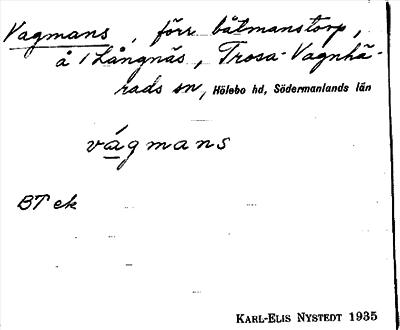 Vagmans, förr båtmanstorp,
å 1 Långnäs, Trosa-Vagnhä-
rads sn, Hölebo hd, Södermanlands län
vágmans
BT ek
KARL-ELIS NYSTEDT 1935